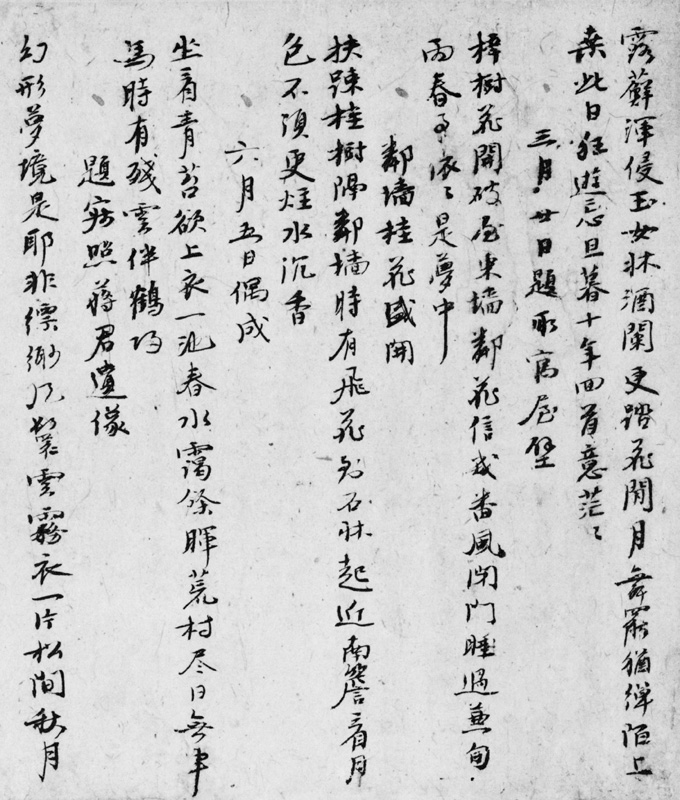 露蘚渾侵玉女牀酒闌更踏花間月舞罷猶彈陌上
桑此日狂遊忘旦暮十年回首意茫〻
三月廿日題所寓屋壁
梓樹花開破屋東墻鄰花信幾番風閉門睡過兼旬
雨春事依〻是夢中
鄰墻桂花盛開
扶疎桂樹隔鄰墻時有飛花到石牀起近南簷看月
色不須更炷水沉香
六月五日偶成
坐看青苔欲上衣一池春水靄餘暉荒村盡日無車
馬時有殘雲伴鶴歸
題寫照蔣君遺像
幻形夢境是耶非縹緲風鬟雲霧衣一片松間秋月